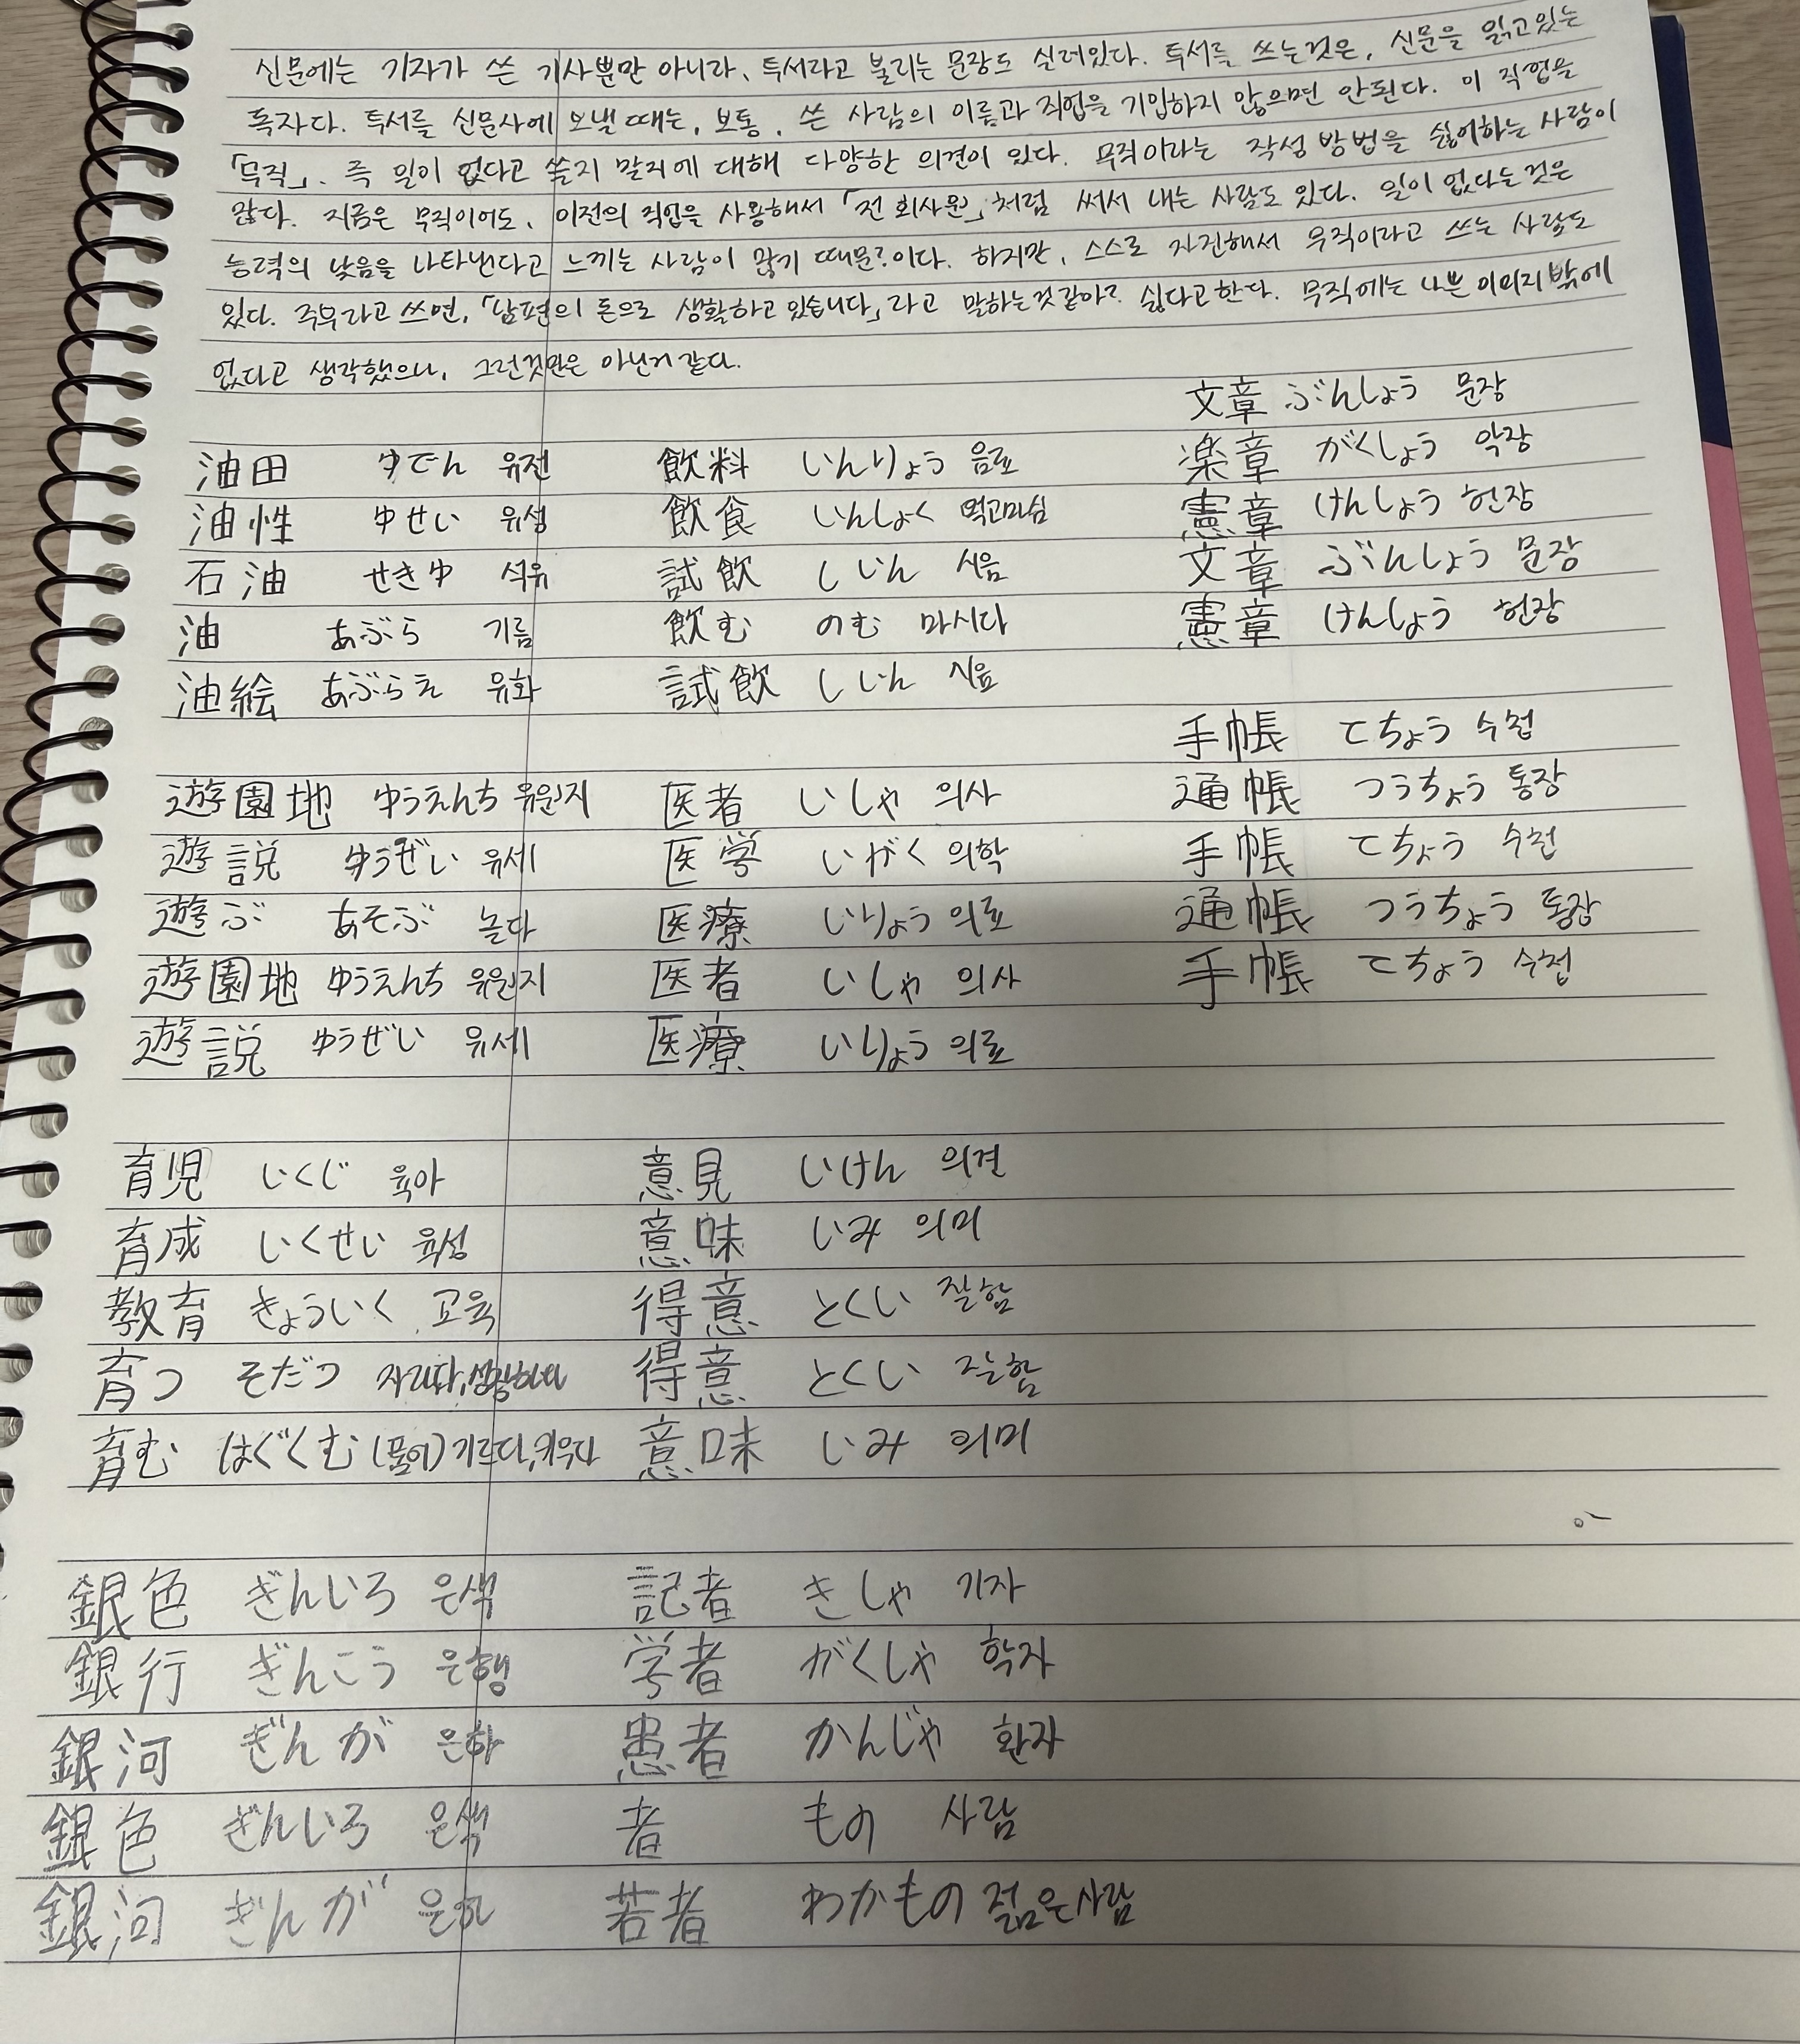 신문에는 기자가 쓴 기사뿐만 아니라, 투서라고 불리는 문장도 실려있다. 투서를 쓰는것은, 신문을 읽고있는
독자다. 투서를 신문사에 보낼때는, 보통, 쓴 사람의 이름과 직업을 기입하지 않으면 안된다. 이 직업을
「무직」, 즉 일이 없다고 쓸지 말지에 대해 다양한 의견이 있다. 무직이라는 작성 방법을 싫어하는 사람이
많다. 지금은 무직이어도, 이전의 직업을 사용해서 「전 회사원」처럼 써서 내는 사람도 있다. 일이 없다는것은
능력의 낮음을 나타낸다고 느끼는 사람이 많기 때문이다. 하지만, 스스로 자진해서 무직이라고 쓰는 사람도
있다. 주부라고 쓰면, 「남편의 돈으로 생활하고 있습니다」라고 말하는것같아 싫다고한다. 무직에는 나쁜 이미지밖에
없다고 생각했으나, 그런것만은 아닌거 같다.
油田 ゆでん 유전
油性 ゆせい 유성
石油 せきゆ 석유
油 あぶら 기름
油絵 あぶらえ 유화
飲料 いんりょう 음료
飲食 いんしょく 먹고마심
試飲 しいん 시음
飲む のむ 마시다
試飲 しいん 시음
文章 ぶんしょう 문장
楽章 がくしょう 악장
憲章 けんしょう 헌장
文章 ぶんしょう 문장
憲章 けんしょう 헌장
遊園地 ゆうえんち 유원지
遊説 ゆうぜい 유세
遊ぶ あそぶ 놀다
遊園地 ゆうえんち 유원지
遊説 ゆうぜい 유세
医者 いしゃ 의사
医学 いがく 의학
医療 いりょう 의료
医者 いしゃ 의사
医療 いりょう 의료
手帳 てちょう 수첩
通帳 つうちょう 통장
手帳 てちょう 수첩
通帳 つうちょう 통장
手帳 てちょう 수첩
育児 いくじ 육아
育成 いくせい 육성
教育 きょういく 교육
育つ そだつ 자라다, 성장하다
育む はぐくむ (품어)기르다, 키우다
意見 いけん 의견
意味 いみ 의미
得意 とくい 잘함
得意 とくい 잘함
意味 いみ 의미
銀色 ぎんいろ 은색
銀行 ぎんこう 은행
銀河 ぎんが 은하
銀色 ぎんいろ 은색
銀河 ぎんが 은하
記者 きしゃ 기자
学者 がくしゃ 학자
患者 かんじゃ 환자
者 もの 사람
若者 わかもの 젊은사람